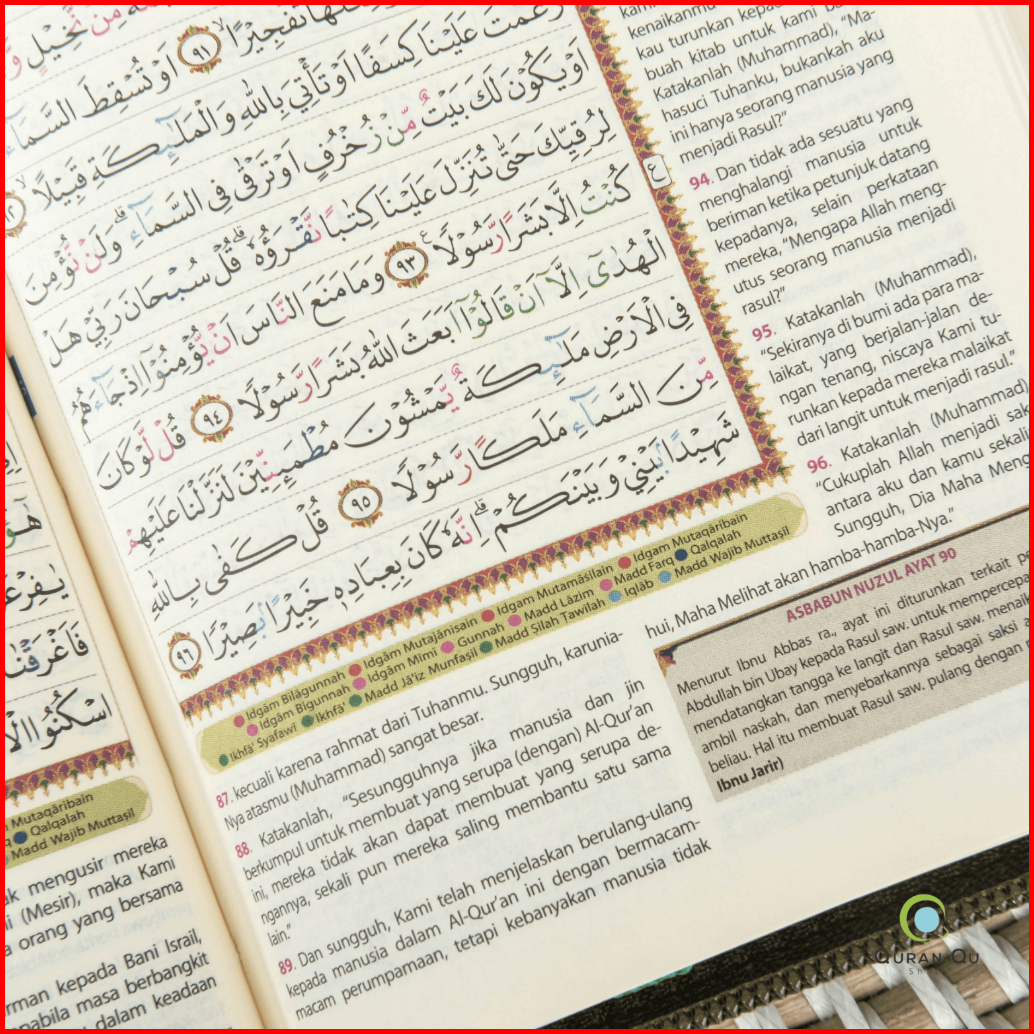 مِّنْ نَّخِيْلٍ
تَفْجِيْرًا ۙ ٩١ اَوْ تُسْقِطَ السَّمَاۤءَ
زَعَمْتَ عَلَيْنَا كِسَفًا اَوْ تَأْتِيَ بِاللّٰهِ وَالْمَلٰۤىِٕكَةِ قَبِيْلًا ۙ ٩٢
اَوْ يَكُوْنَ لَكَ بَيْتٌ مِّنْ زُخْرُفٍ اَوْ تَرْقٰى فِى السَّمَاۤءِ ۗ وَلَنْ نُّؤْمِنَ
لِرُقِيِّكَ حَتّٰى تُنَزِّلَ عَلَيْنَا كِتٰبًا نَّقْرَؤُهٗ ۗ قُلْ سُبْحَانَ رَبِّيْ هَلْ
كُنْتُ اِلَّا بَشَرًا رَّسُوْلًا ࣖ ٩٣ وَمَا مَنَعَ النَّاسَ اَنْ يُّؤْمِنُوْٓا اِذْ جَاۤءَهُمُ
الْهُدٰٓى اِلَّآ اَنْ قَالُوْٓا اَبَعَثَ اللّٰهُ بَشَرًا رَّسُوْلًا ٩٤ قُلْ لَّوْ كَانَ
فِى الْاَرْضِ مَلٰۤىِٕكَةٌ يَّمْشُوْنَ مُطْمَىِٕنِّيْنَ لَنَزَّلْنَا عَلَيْهِمْ
مِّنَ السَّمَاۤءِ مَلَكًا رَّسُوْلًا ٩٥ قُلْ كَفٰى بِاللّٰهِ
شَهِيْدًاۢ بَيْنِيْ وَبَيْنَكُمْ ۗ اِنَّهٗ كَانَ بِعِبَادِهٖ خَبِيْرًاۢ بَصِيْرًا ٩٦
ع
Idgām Bilāgunnah Idgām Mutajānisain Idgam Mutamāṡilain Idgam Mutaqāribain
Idgām Bigunnah Idgām Mimī Gunnah Madd Lāzim Madd Farq Qalqalah
Ikhfā' Syafawī Ikhfā' Madd Jā'iz Munfaṣil Madd Ṣilah Ṭawīlah Iqlāb Madd Wajib Muttaṣil
87. kecuali karena rahmat dari Tuhanmu. Sungguh, karunia-
Nya atasmu (Muhammad) sangat besar.
88. Katakanlah, "Sesungguhnya jika manusia dan jin
berkumpul untuk membuat yang serupa (dengan) Al-Qur'an
ini, mereka tidak akan dapat membuat yang serupa de-
ngannya, sekali pun mereka saling membantu satu sama
lain."
89. Dan sungguh, Kami telah menjelaskan berulang-ulang
kepada manusia dalam Al-Qur'an ini dengan bermacam-
macam perumpamaan, tetapi kebanyakan manusia tidak
kenaikanmu
kau turunkan kepada
buah kitab untuk kami
Katakanlah (Muhammad), "Ma-
hasuci Tuhanku, bukankah aku
ini hanya seorang manusia yang
menjadi Rasul?"
94. Dan tidak ada sesuatu yang
menghalangi manusia untuk
beriman ketika petunjuk datang
kepadanya, selain perkataan
mereka, "Mengapa Allah meng-
utus seorang manusia menjadi
rasul?"
95. Katakanlah (Muhammad),
"Sekiranya di bumi ada para ma-
laikat, yang berjalan-jalan de-
ngan tenang, niscaya Kami tu-
runkan kepada mereka malaikat
dari langit untuk menjadi rasul."
96. Katakanlah (Muhammad)
"Cukuplah Allah menjadi
antara aku dan kamu sekali
Sungguh, Dia Maha
hui, Maha Melihat akan hamba-hamba-Nya."
ASBABUN NUZUL AYAT 90
Menurut Ibnu Abbas ra., ayat ini diturunkan terkait
Abdullah bin Ubay kepada Rasul saw. untuk
mendatangkan tangga ke langit dan Rasul saw.
ambil naskah, dan menyebarkannya sebagai saksi
beliau. Hal itu membuat Rasul saw. pulang dengan
Ibnu Jarir)
اسْكُنُوا
Mutaqāribain
Qalqalah
Madd Wajib Muttaṣil
mengusir mereka
(Mesir), maka Kami
orang yang bersama
kepada Bani Israil,
masa berbangkit
dalam keadaan
QURAN QU